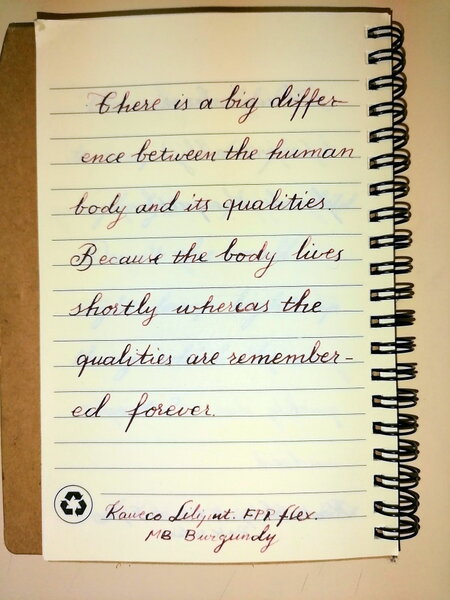 There is a big differ-
ence between the human
body and its qualities.
Because the body lives
shortly whereas the
qualities are remember-
ed forever.
Kaweco Liliput. FPR flex.
MB Burgundy